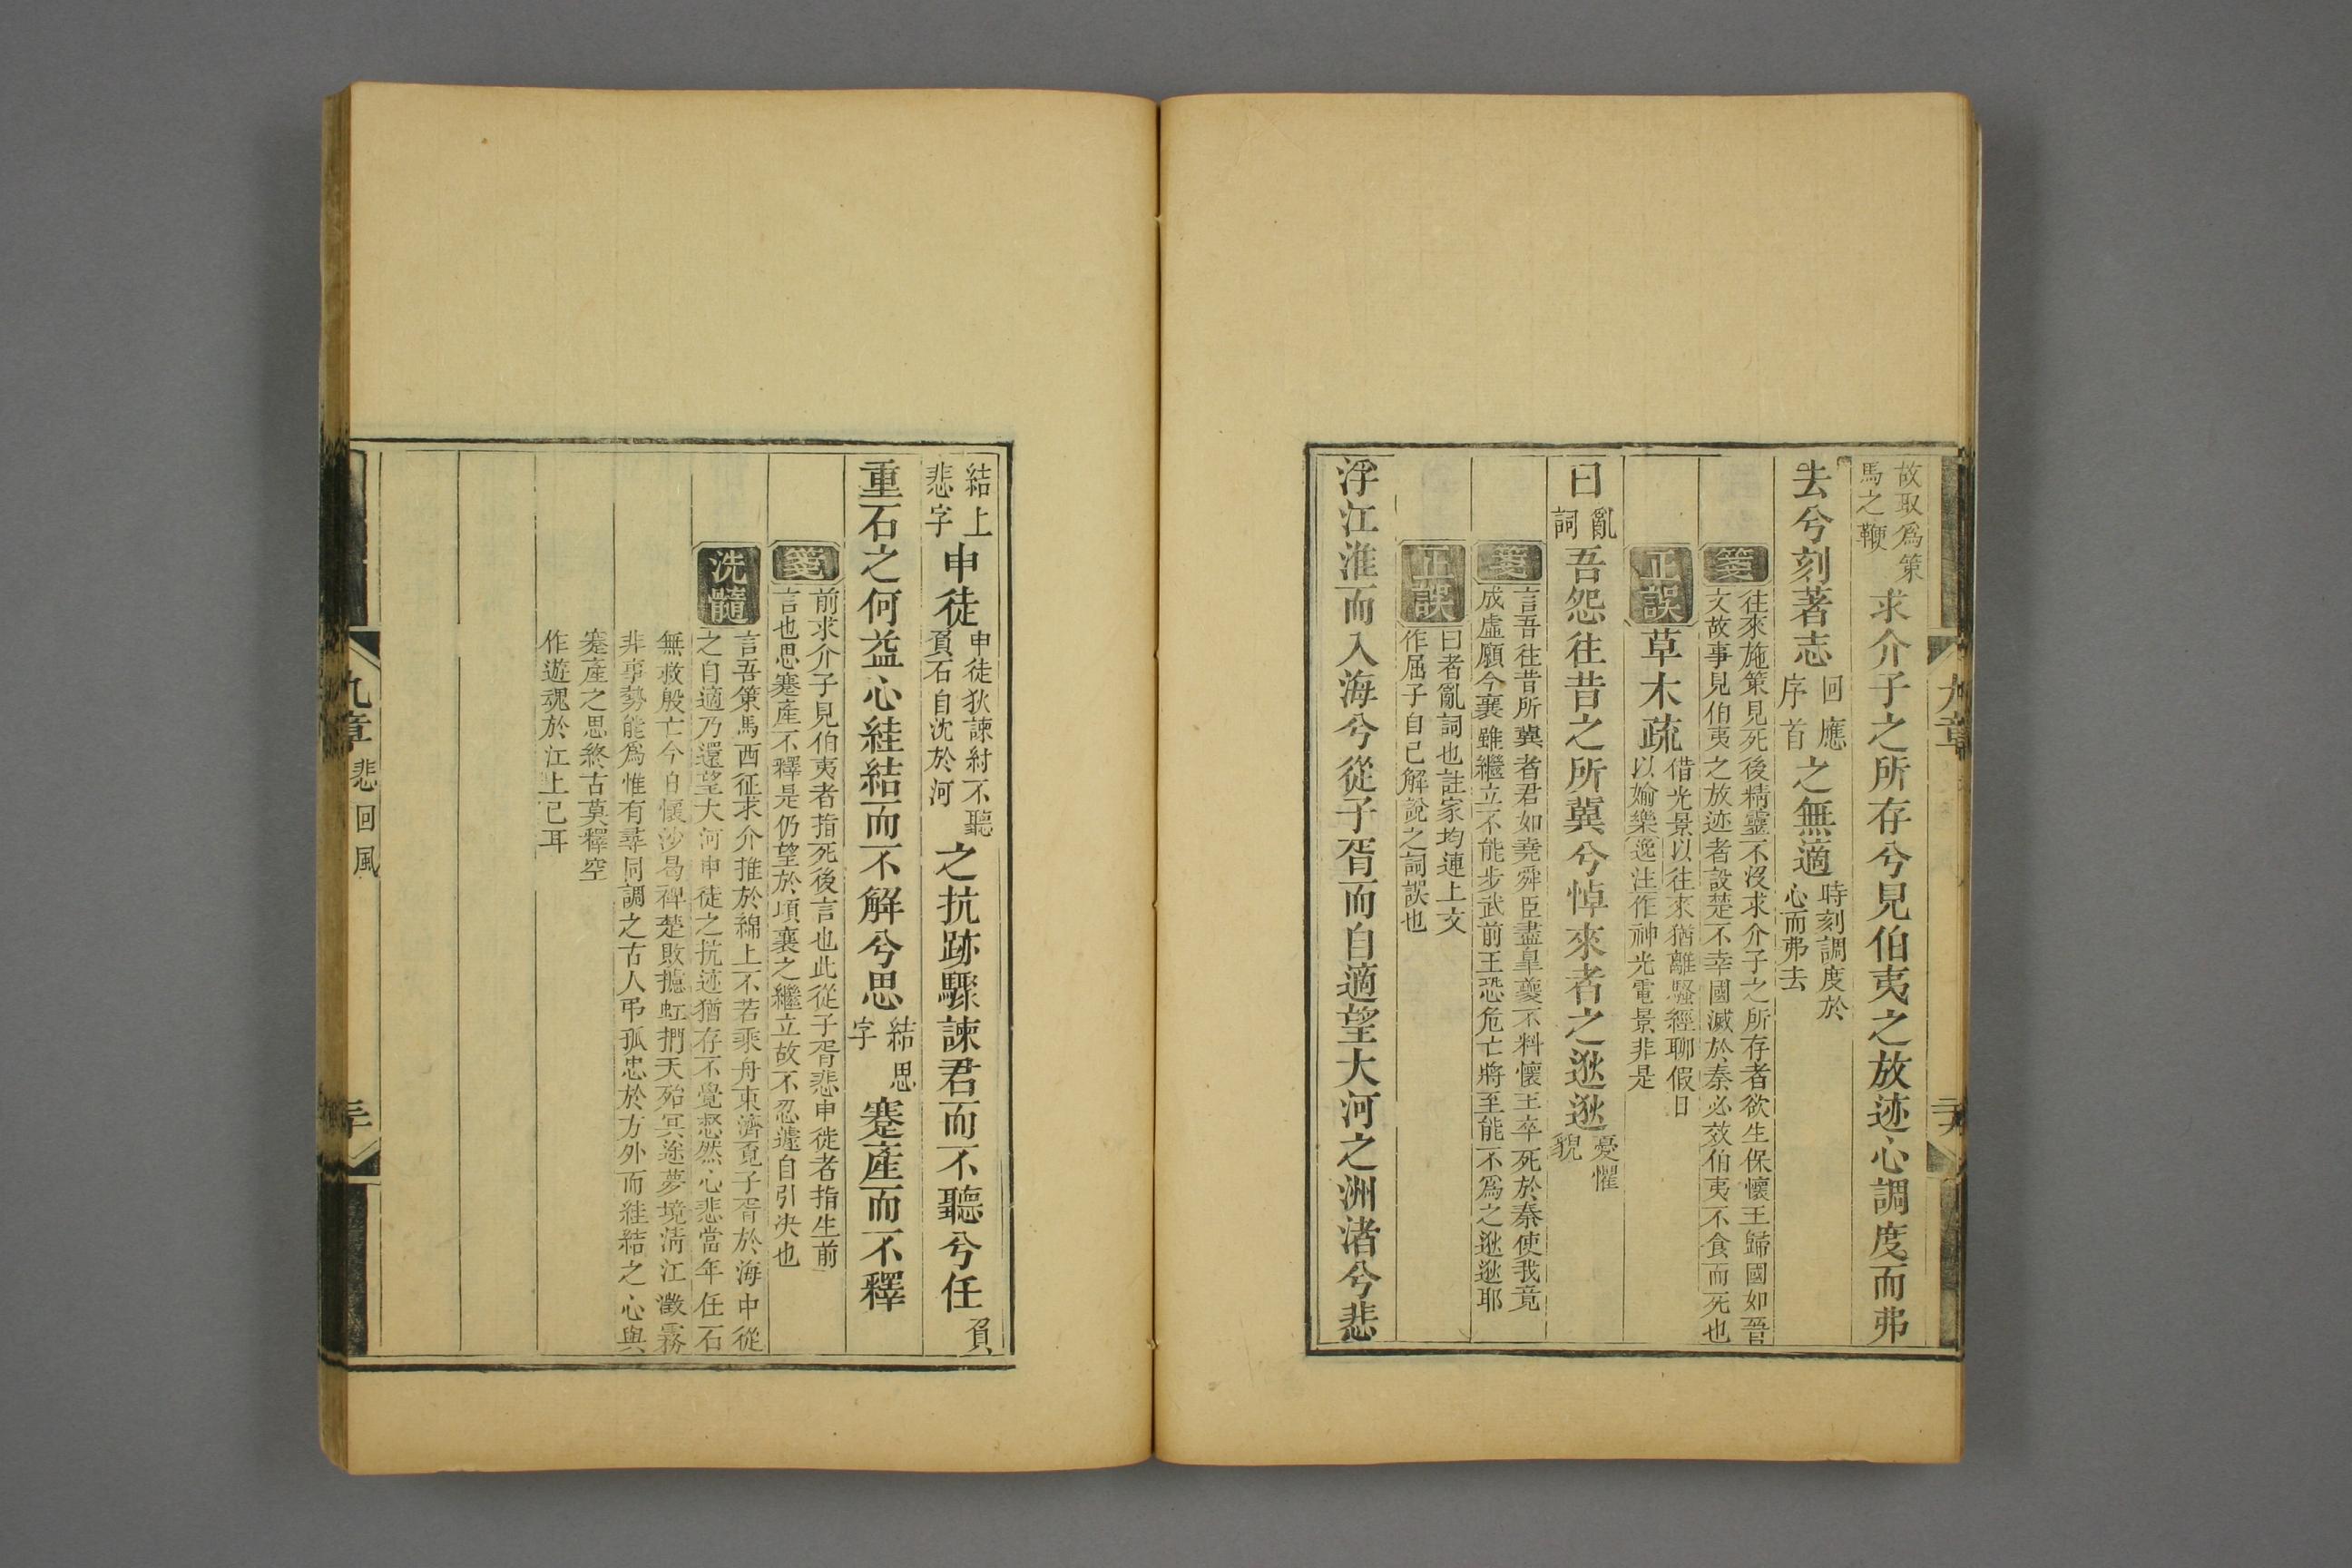 故取爲策
馬之鞭
求介子之所存兮見伯夷之放迹心調度而弗
去兮刻著志
回應
序首
之無適
時刻調度於
心而弗去
箋
往來施策見死後精靈不沒求介子之所存者欲生保懷王歸國如晉
文故事見伯夷之放迹者設楚不幸國滅於秦必效伯夷不食而死也
正誤
草木疏
借光景以往來猶離騷經聊假日
以媮樂逸注作神光電景非是
曰
亂
詞
吾怨往昔之所冀兮悼來者之逖逖
憂懼
貌
箋
言吾往昔所冀者君如堯舜臣盡皐夔不料懷王卒死於秦使我竟
成虛願今襄雖繼立不能步武前王恐危亡將至能不爲之逖逖耶
正誤
曰者亂詞也註家均連上文
作屈子自已解說之詞誤也
浮江淮而入海兮從子胥而自適望大河之洲渚兮悲
九章
結上
悲字
申徒
申徒狄諫紂不聽
負石自沈於河
之抗跡驟諫君而不聽兮任
負
重石之何益心絓結而不解兮思
結思
字
蹇產而不釋
箋
前求介子見伯夷者指死後言也此從子胥悲申徒者指生前
言也思蹇產不釋是仍望於頃襄之繼立故不忍遽自引决也
洗髓
言吾策馬西征求介推於綿上不若乘舟東濟覓子胥於海中從
之自適乃還望大河申徒之抗迹猶存不覺惄然心悲當年任石
無救殷亡今自懷沙曷裨楚敗攄虹捫天殆冥途夢境淸江澂霧
非事勢能爲惟有尋同調之古人弔孤忠於方外而絓結之心與
蹇產之思終古莫釋空
作遊魂於江上已耳
九章
悲回風
三十